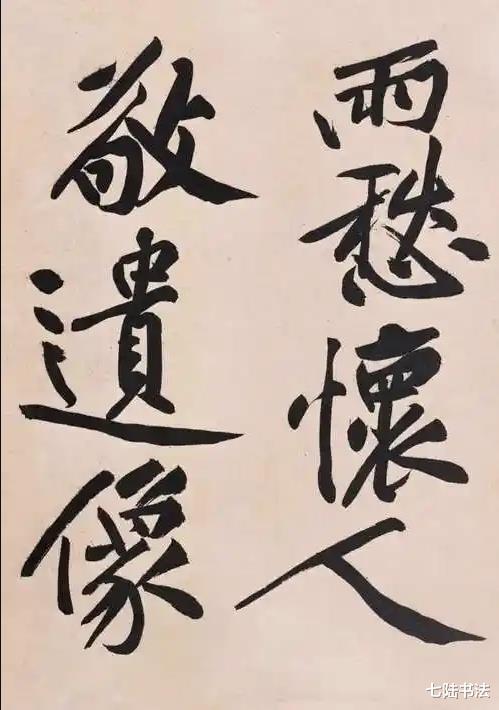 雨愁懷人
敬遺像
七陆书法